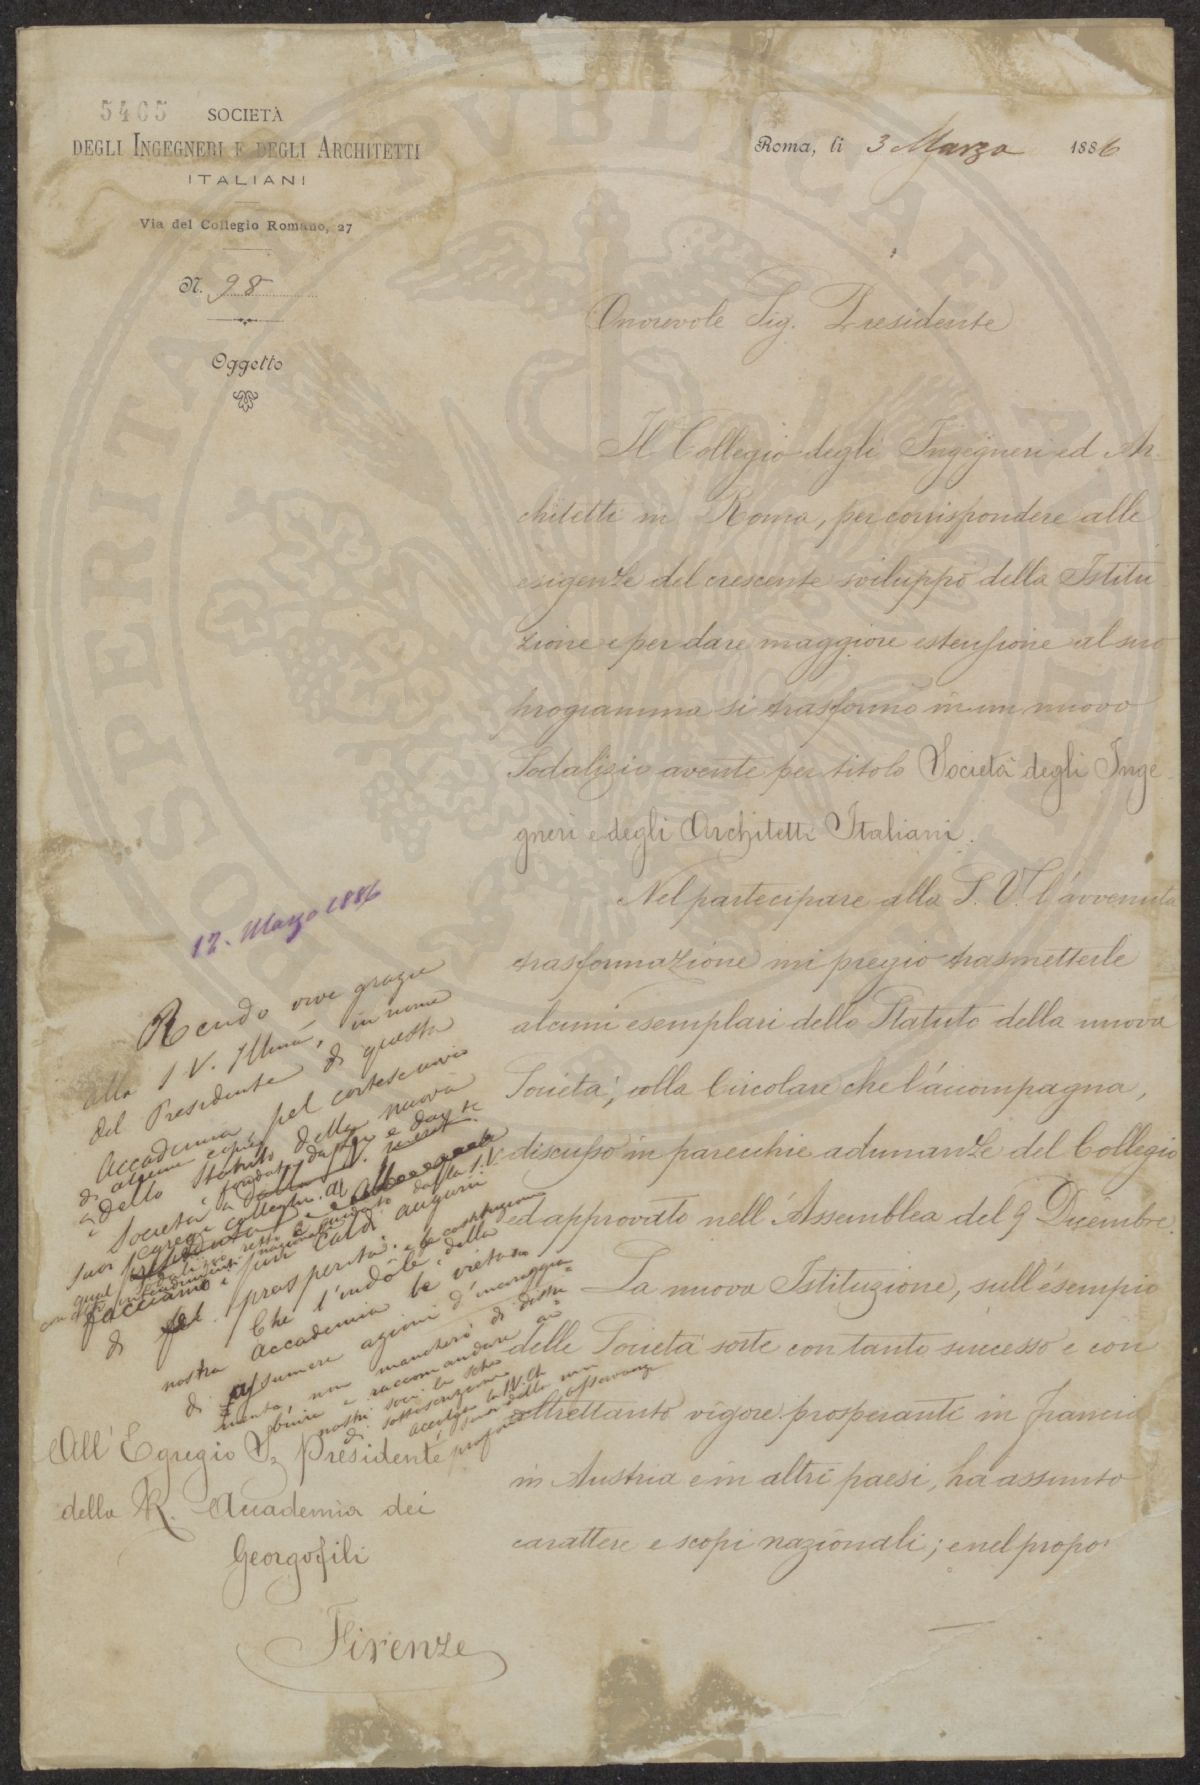 5405
SOCIETÀ
DEGLI INGEGNERI E DEGLI ARCHITETTI
ITALIANI
Via del Collegio Romano, 27
N. 98
Oggetto
Roma, li 3 Marzo 1886
Onorevole Sig. Presidente
Il Collegio degli Ingegneri ed Ar-
chitetti in Roma, per corrispondere alle
esigenze del crescente sviluppo della Istitu-
zione e per dare maggiore estensione al suo
programma si trasformò in un nuovo
Sodalizio avente per titolo Società degli Inge-
gneri e degli Architetti Italiani.
Nel partecipare alla S. V. l'avvenuta
trasformazione mi pregio trasmetterle
alcuni esemplari dello Statuto della nuova
Società, colla Circolare che l'accompagna,
discusso in parecchie adunanze del Collegio
ed approvato nell'Assemblea del 9 Dicembre.
La nuova Istituzione, sull'esempio
delle Società sorte con tanto successo e con
altrettanto vigore prosperanti in Francia
in Austria e in altri paesi, ha assunto
carattere e scopi nazionali; e nel propo-
12. Marzo 1886
Rendo vive grazie
alla S V. Illma, in nome
del Presidente di questa
Accademia, pel cortese invio
di alcune copie
dello Statuto della nuova
Società
suoi egregi colleghi
facciamo i più caldi augurii
di prosperità.
Che l'indole della
nostra Accademia le vieta
di assumere azioni d'incoraggia-
mento, non mancherò di distri-
buire e raccomandare ai
nostri soci le schede
di sottoscrizione
Accolga la S. V. Ill
i sensi della mia
profonda osservanza
All'Egregio S. Presidente
della R. Accademia dei
Georgofili
Firenze
PROSPERITATI PUBLICAE AUGENDAE